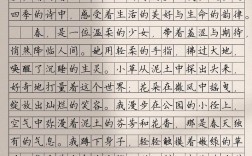 四季的诗中，感受着生活的美好与生命的韵律。
春，是一位温柔的少女，带着羞涩与期待，
悄然降临人间。她用轻柔的手指，拂过大地，
唤醒了沉睡的生灵。小草从泥土中探出头来，
好奇地打量着这个世界，花朵在微风中摇曳，
绽放出灿烂的笑容。我漫步在公园的小径上，
空气中弥漫着泥土的芬芳和花香，那是春天独
有的气息。我蹲下身子，轻轻触摸着嫩绿的草